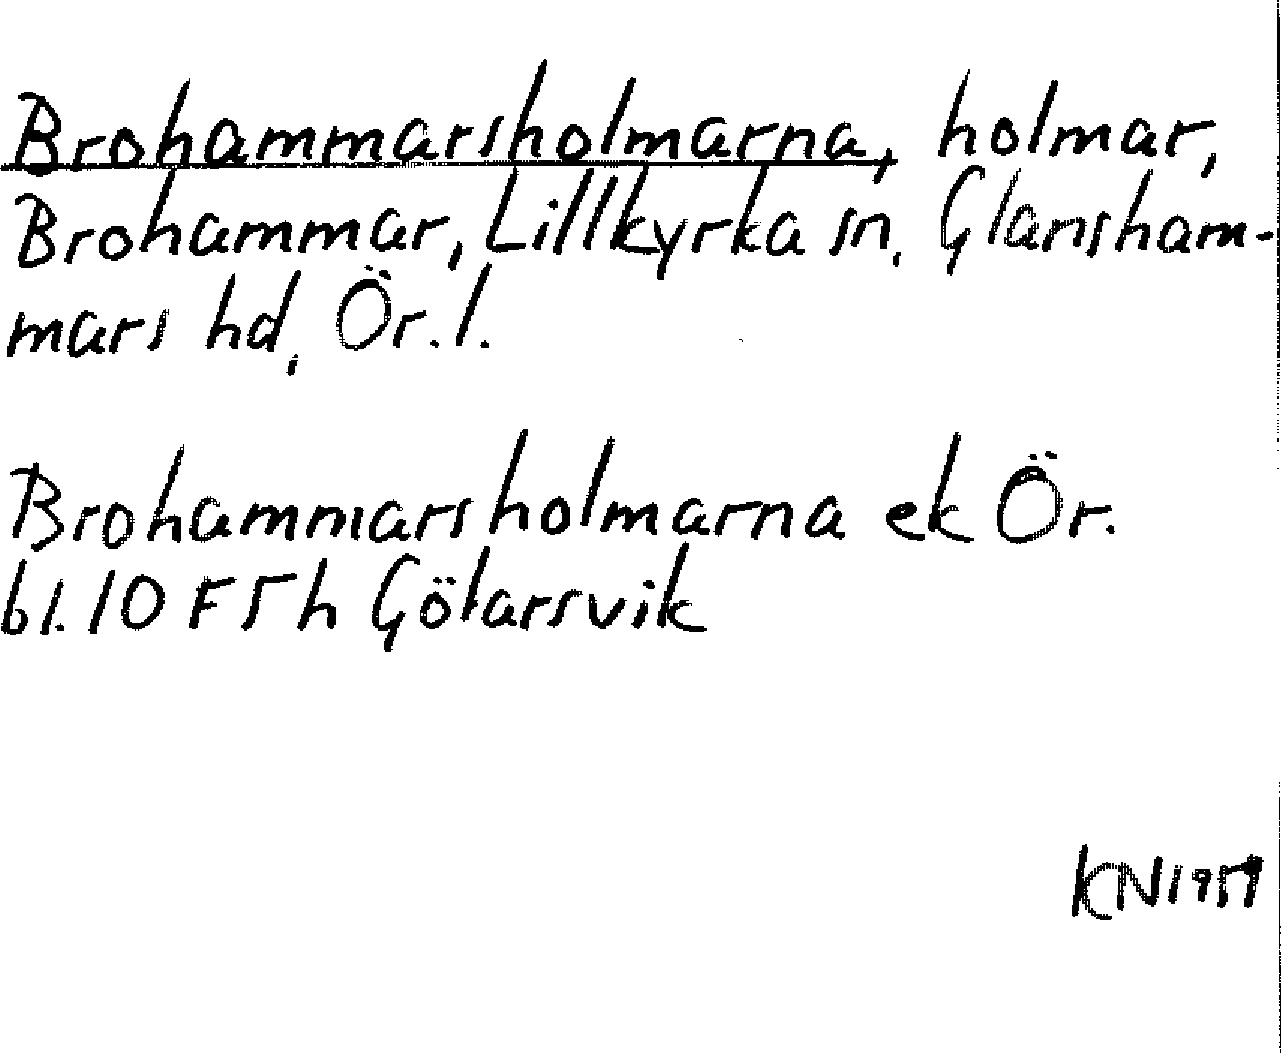 Brohammarsholmarna, holmar,
Brohammar, Lillkyrka sn, Glansham-
mars hd, Ör. l.
Brohammarsholmarna ek Ör.
bl. 10 F 5 h Götarsvik
KN